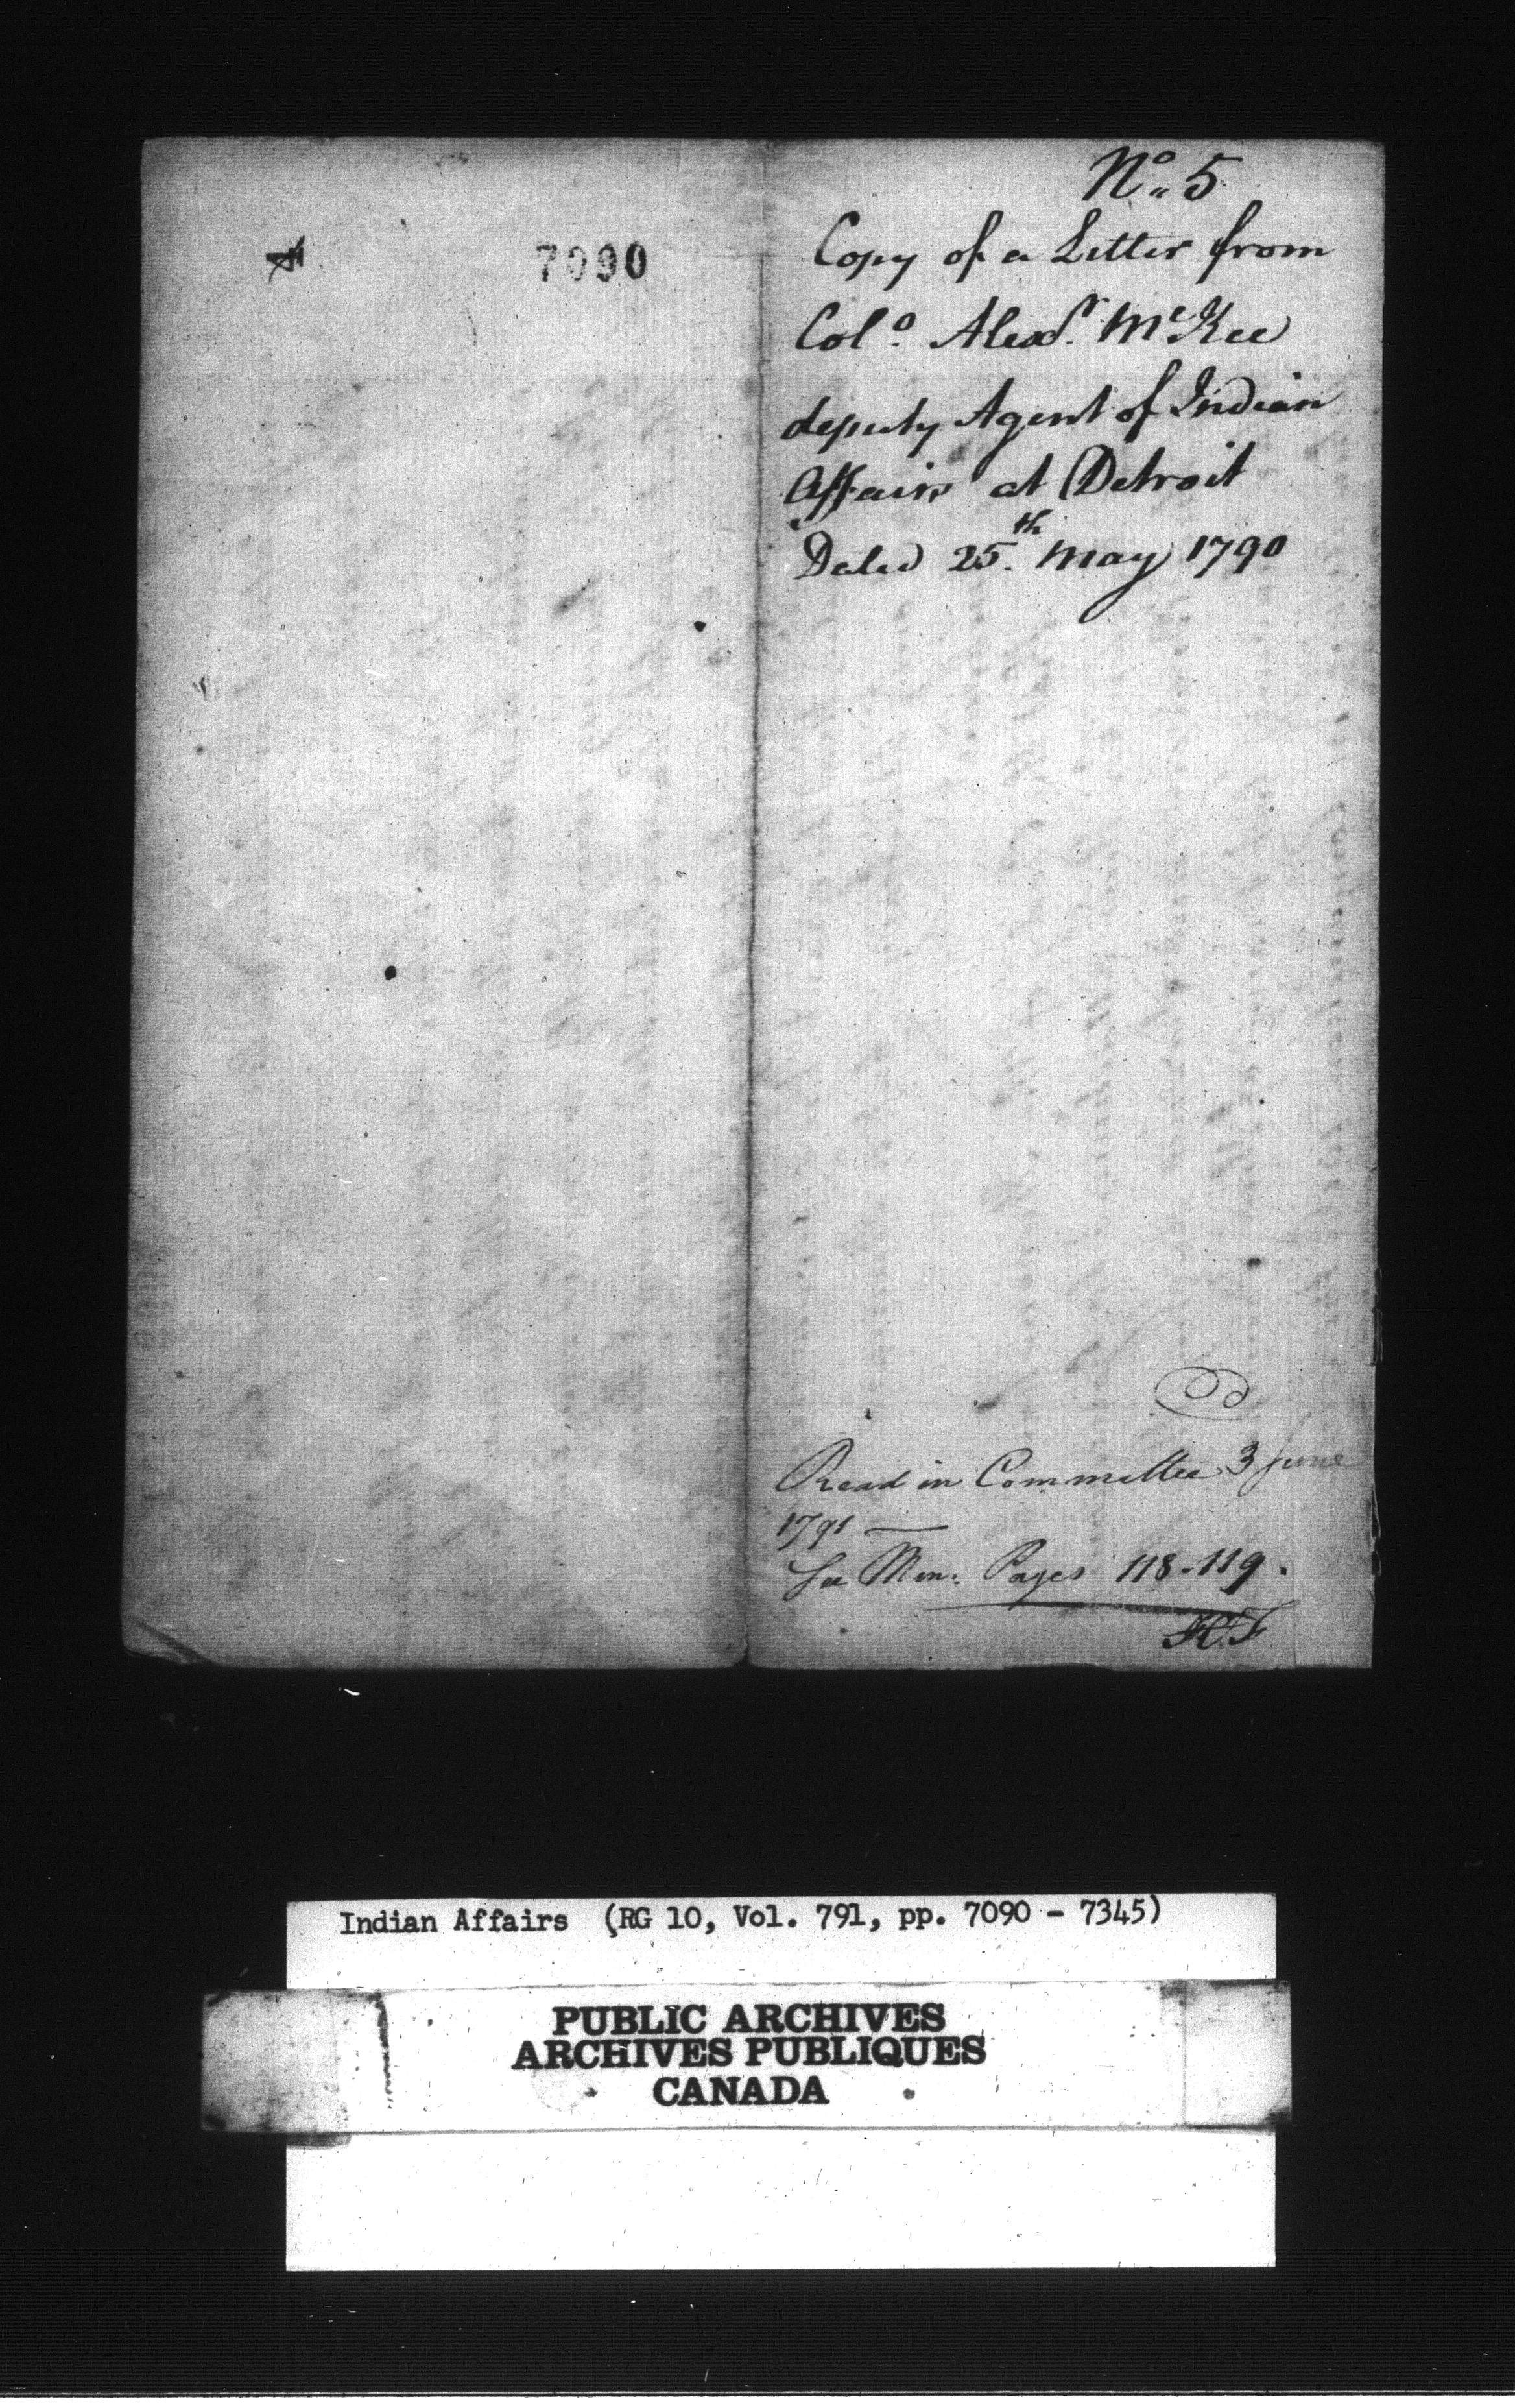 7090
No. 5
Copy of a Letter from
Colo. Alexr. McKee
deputy Agent of Indian
Affairs at Detroit
Dated 25th. May 1790
Read in Committee 3 June
1791 —
See Min: Pages 118-119.
Indian Affairs (RG 10, Vol. 791, pp. 7090 - 7345)
PUBLIC ARCHIVES
ARCHIVES PUBLIQUES
CANADA